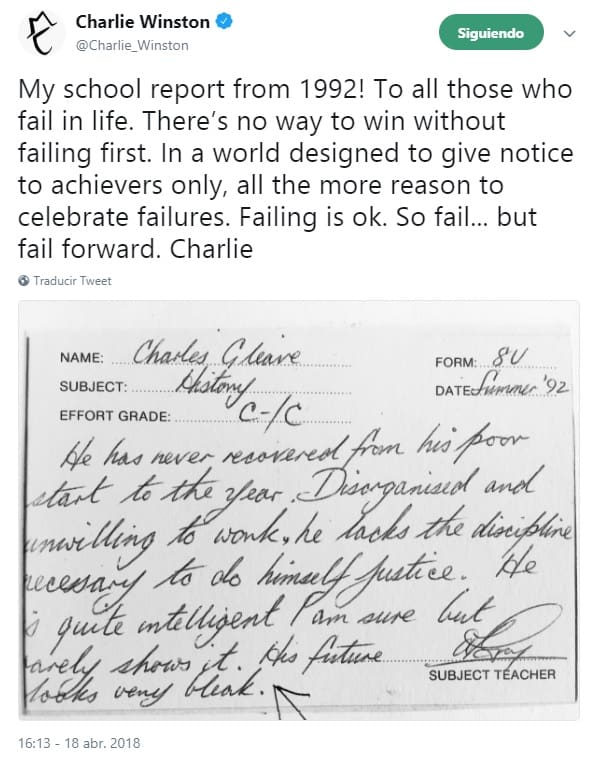 Charlie Winston
@Charlie_Winston
Siguiendo
My school report from 1992! To all those who
fail in life. There's no way to win without
failing first. In a world designed to give notice
to achievers only, all the more reason to
celebrate failures. Failing is ok. So fail... but
fail forward. Charlie
Traducir Tweet
NAME: Charles Gleave
FORM: 8U
SUBJECT: History
DATE: Summer '92
EFFORT GRADE: C-/C
He has never recovered from his poor
start to the year. Disorganised and
unwilling to work, he lacks the discipline
necessary to do himself justice. He
is quite intelligent I am sure but
rarely shows it. His future
looks very bleak.
SUBJECT TEACHER
16:13 - 18 abr. 2018